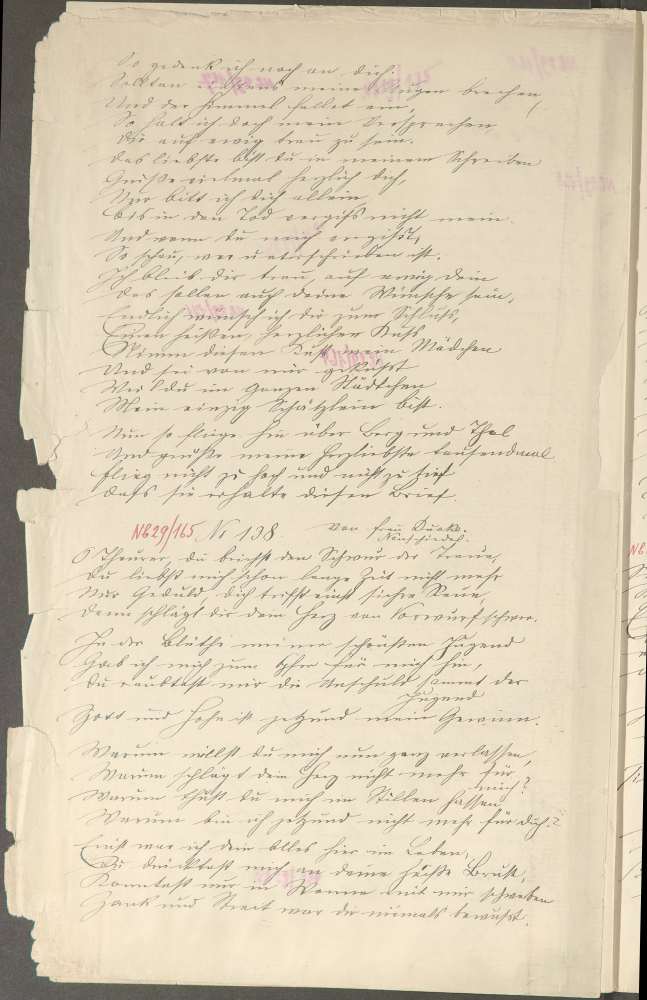 So gedenk ich noch an dich.
Sollten einstens meine Augen brechen
Und der Himmel fallet ein,
So halt ich doch mein Versprechen
Dir auf ewig treu zu sein.
Das liebste bist du in meinem Schreiben
Grüße vielmal herzlich dich,
Nur bitt ich dich allein
bis in den Tod vergiß nicht mein.
Und wenn du mich
So schau, wer unterschrieben ist.
Ich bleib dir treu, auf ewig dein
Das sollen auch deine Wünsche sein.
Endlich wünsch ich dir zum Schluß,
Einen heißen, herzlichen Kuß
Nimm diesen Kuß mein Mädchen
Und sei von mir geküsst
Weil du im ganzen Städtchen
Mein einzig Schätzlein bist.
Nun so fliege hin über Berg und Thal
Und grüße meine Herzliebste tausendmal
flieg nicht zu hoch und nicht zu tief
daß sie erhalte diesen Brief.
NB29/165 No 138. von frau
O Theurer, du brichst den Schwur der Treue,
Du liebst mich schon lange Zeit nicht mehr
Nur Geduld, dich trifft einst sicher Reue,
Dann schlägt dir dein Herz von Vorwurf schwer.
In der Blüthe meiner schönsten Jugend
Gab ich mich zum Opfer für mich hin,
Du raubtest mir die Unschuld sammt der
Jugend
Spott und Hohn ist jetzund mein Gewinn.
Warum willst du mich nun ganz verlassen,
Warum schlägt dein Herz nicht mehr für
mich?
Warum thust du mich im Stillen hassen
Warum bin ich jetzund nicht mehr für dich?
Einst war ich dein Alles hier im Leben,
Du drücktest mich an deine heiße Brust,
Konntest nur in Wonne mit mir schweben
Zank und Streit war dir niemals bewußt.